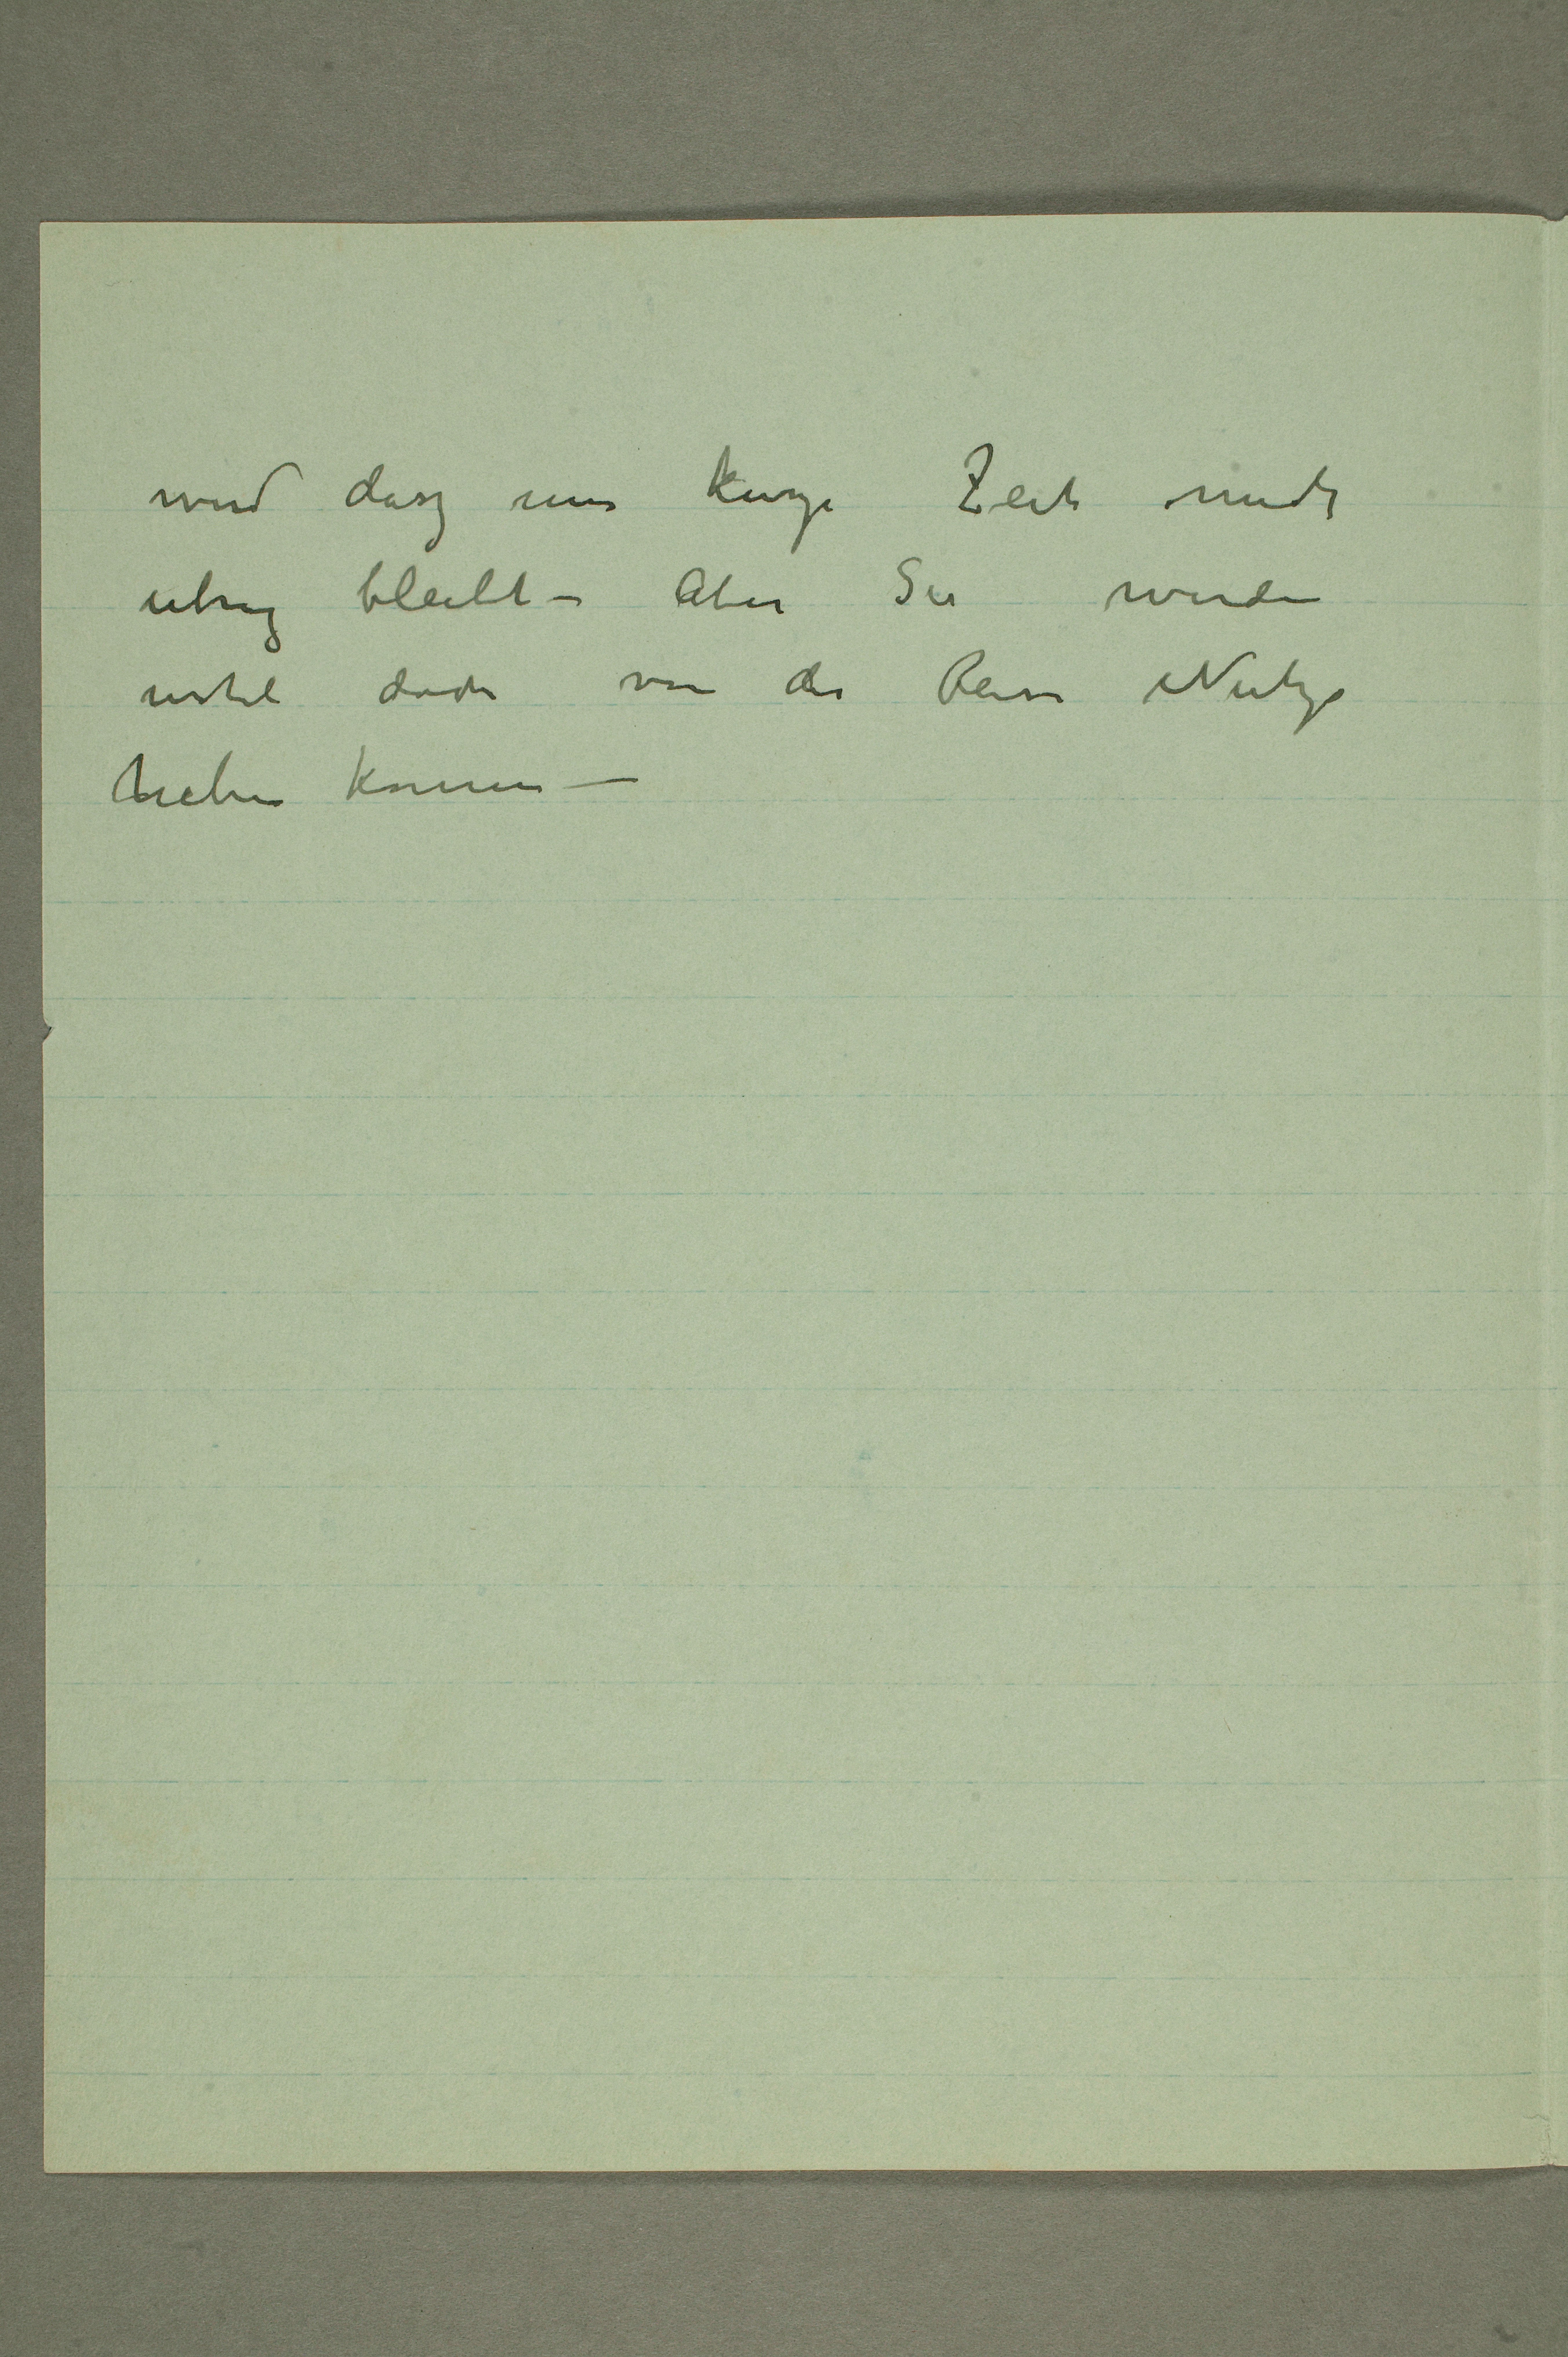 wird dasz nur kurze Zeit mich
ubrig bleibt – Aber Sie werden
wohl doch von der Reise Nutze
haben konnen —